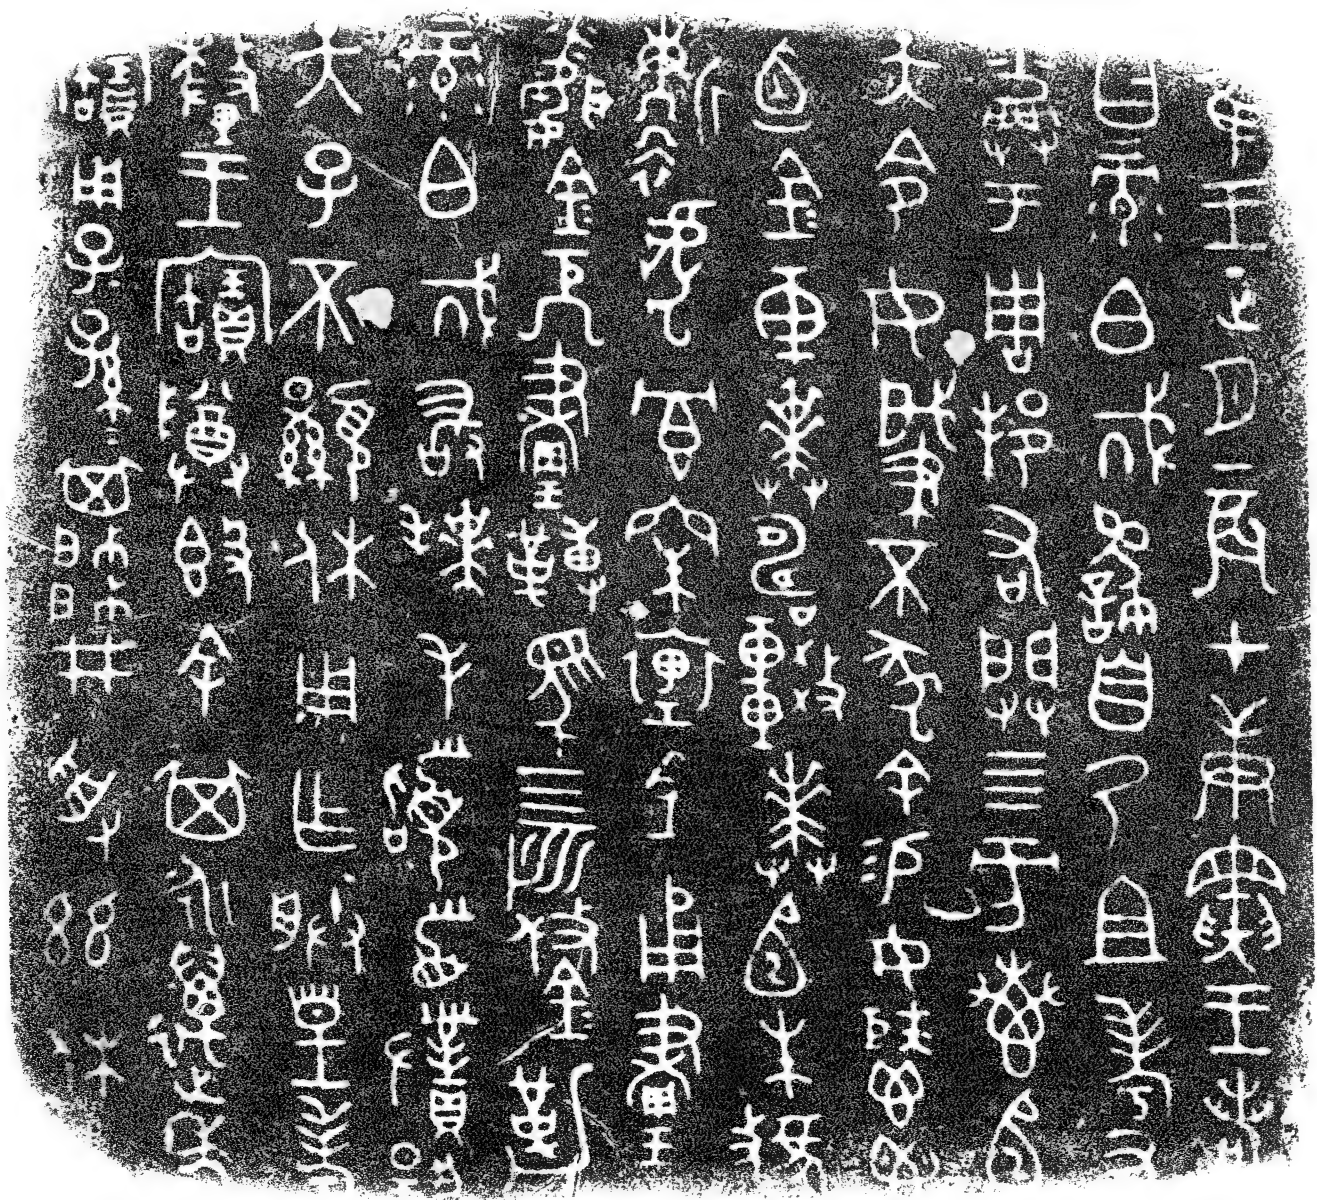 隹王正月辰才庚寅王若
曰彔白𢦚繇自乃且考又
爵于周邦右闢四方叀𢎿
天令女肇不㒸余易女𩰬鬯
卣金車𠦪𢃎較𠦪𠄨朱虢
靳虎冟朱裏金甬畫
金厄畫轉馬四匹鋚勒
彔白𢦚敢拜手𩒨首對揚
天子不顯休用乍朕皇考
釐王寶尊簋余其永萬年寶
用子子孫孫其帥井受茲休